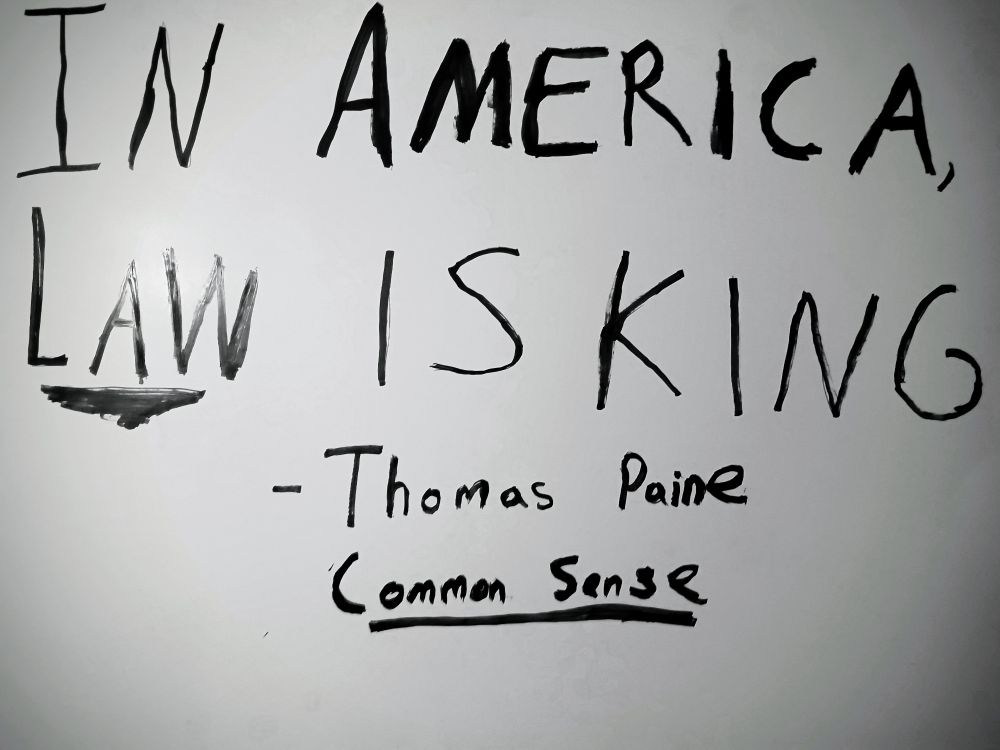 IN AMERICA,
LAW IS KING
- Thomas Paine
Common Sense